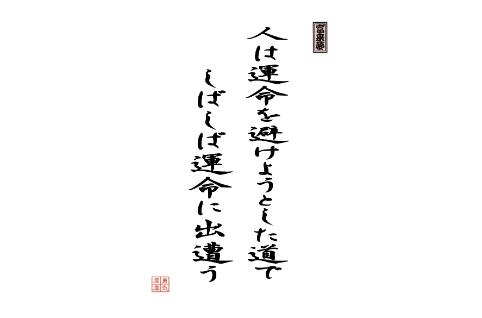 人は運命を避けようとした道で
しばしば運命に出遭う